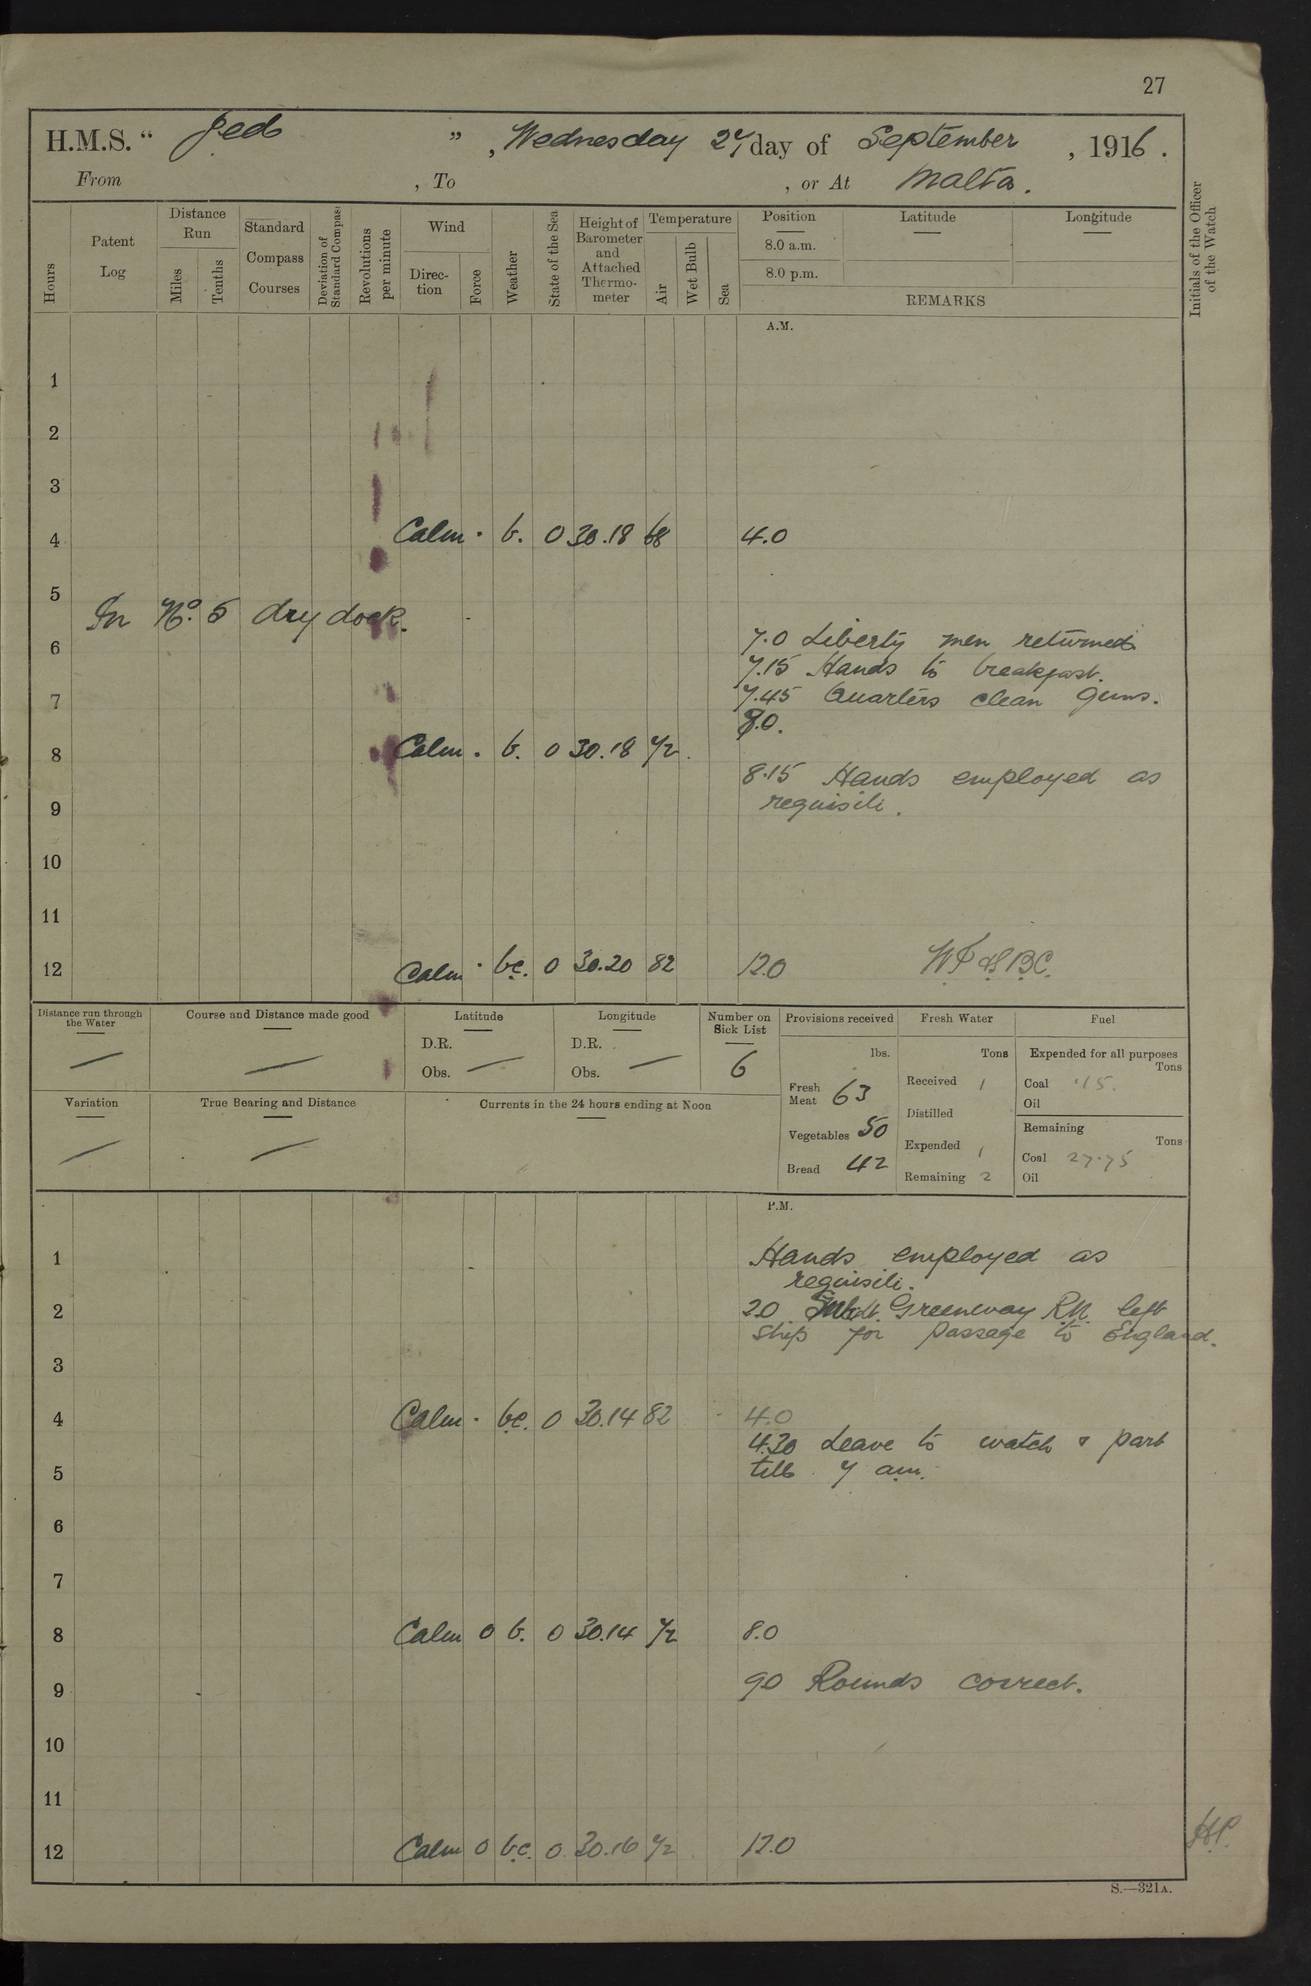 27
H.M.S. " Jed ", Wednesday 27 day of September, 1916.
From , To , or At Malta.
Hours
Patent Log
Distance Run
Miles
Tenths
Standard Compass Courses
Deviation of Standard Compass
Revolutions per minute
Wind
Direction
Force
Weather
State of the Sea
Height of Barometer and Attached Thermometer
Temperature
Air
Wet Bulb
Sea
Position
Latitude
Longitude
8.0 a.m.
8.0 p.m.
REMARKS
Initials of the Officer of the Watch
A.M.
1
2
3
4 Calm . b. 0 30.18 68 4.0
5
In No. 5 dry dock.
6
7.0 Liberty men returned
7.15 Hands to breakfast.
7 7.45 Quarters clean guns.
8.0.
8 Calm . b. 0 30.18 72.
8.15 Hands employed as
9 requisite.
10
11
12 Calm . bc. 0 30.20 82 12.0
Distance run through the Water
Course and Distance made good
Latitude
D.R.
Obs. —
Longitude
D.R.
Obs. —
Number on Sick List
6
Provisions received
lbs.
Fresh Meat 63
Vegetables 50
Bread 42
Fresh Water
Tons
Received 1
Distilled
Expended 1
Remaining 2
Fuel
Expended for all purposes
Tons
Coal .15.
Oil
Remaining
Tons
Coal 27.75
Oil
Variation
True Bearing and Distance
Currents in the 24 hours ending at Noon
P.M.
1 Hands employed as
requisite.
2 2.0 Sub Lt. Greenway R.N. left
ship for passage to England.
3
4 Calm . bc. 0 30.14 82 4.0
4.30 Leave to watch & part
5 till 7 am.
6
7
8 Calm 0 b. 0 30.14 72 8.0
9 9.0 Rounds correct.
10
11
12 Calm 0 bc. 0 30.16 72 12.0
S.—321A.